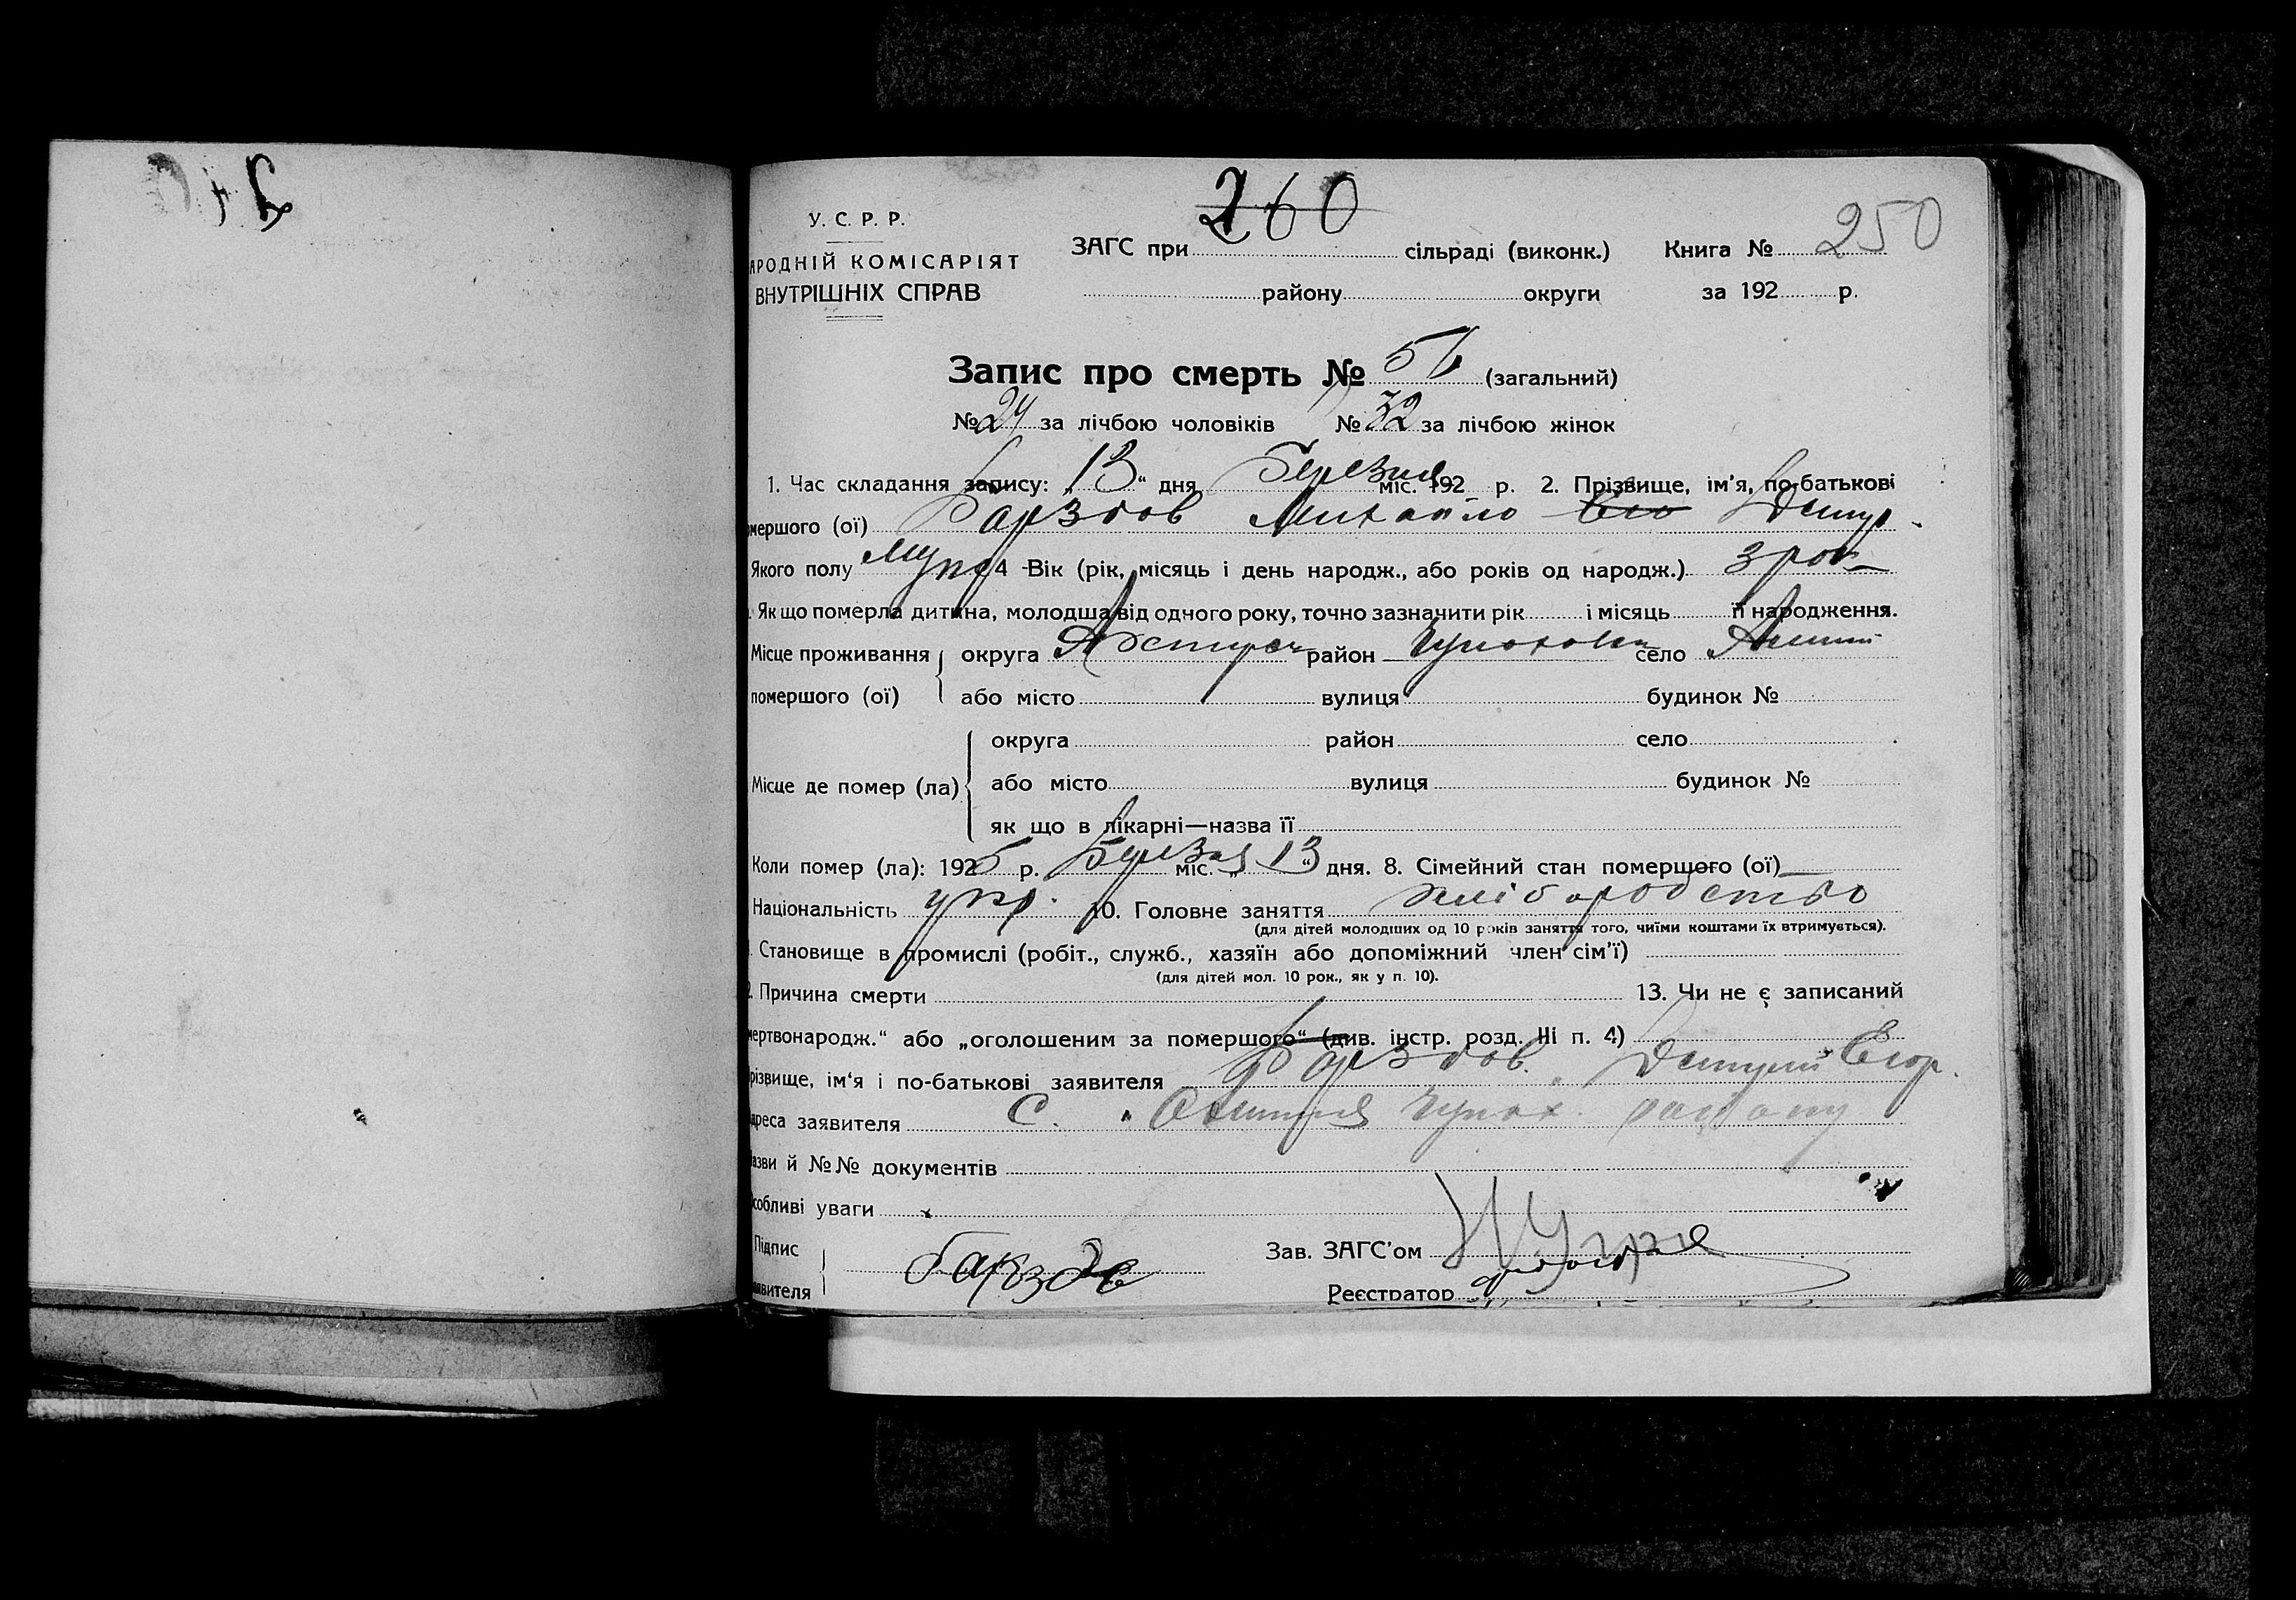 260
250
У. С. Р. Р.
АРОДНІЙ КОМІСАРІЯТ
ВНУТРІШНІХ СПРАВ
ЗАГС при сільраді (виконк.) Книга №
району округи за 192 р.
Запис про смерть № 56 (загальний)
№ 24 за лічбою чоловіків № 32 за лічбою жінок
1. Час складання запису: „13“ дня Березня міс. 192 р. 2. Прізвище, ім'я, по-батькові
мершого (ої) Барздов Михайло Дмитр.
Якого полу 4 Вік (рік, місяць і день народж., або років од народж.) 3 рок
Як що померла дитина, молодша від одного року, точно зазначити рік і місяць її народження.
Місце проживання округа район село
помершого (ої) або місто вулиця будинок №
округа район село
Місце де помер (ла) або місто вулиця будинок №
як що в лікарні—назва її
Коли помер (ла): 1926 р. Березня міс. „13“ дня. 8. Сімейний стан помершого (ої) —
Національність укр. 10. Головне заняття хліборобство
(для дітей молодших од 10 років заняття того, чиїми коштами їх втримується).
Становище в промислі (робіт., служб., хазяїн або допоміжний член сім'ї)
(для дітей мол. 10 рок., як у п. 10).
Причина смерти 13. Чи не є записаний
мертвонародж.“ або „оголошеним за помершого“ (див. інстр. розд. III п. 4)
різвище, ім'я і по-батькові заявителя Барздов Дмитрий Егор.
дреса заявителя С. району
азви й №№ документів
собливі уваги
Підпис
Зав. ЗАГС'ом
явителя Барздов
Реєстратор